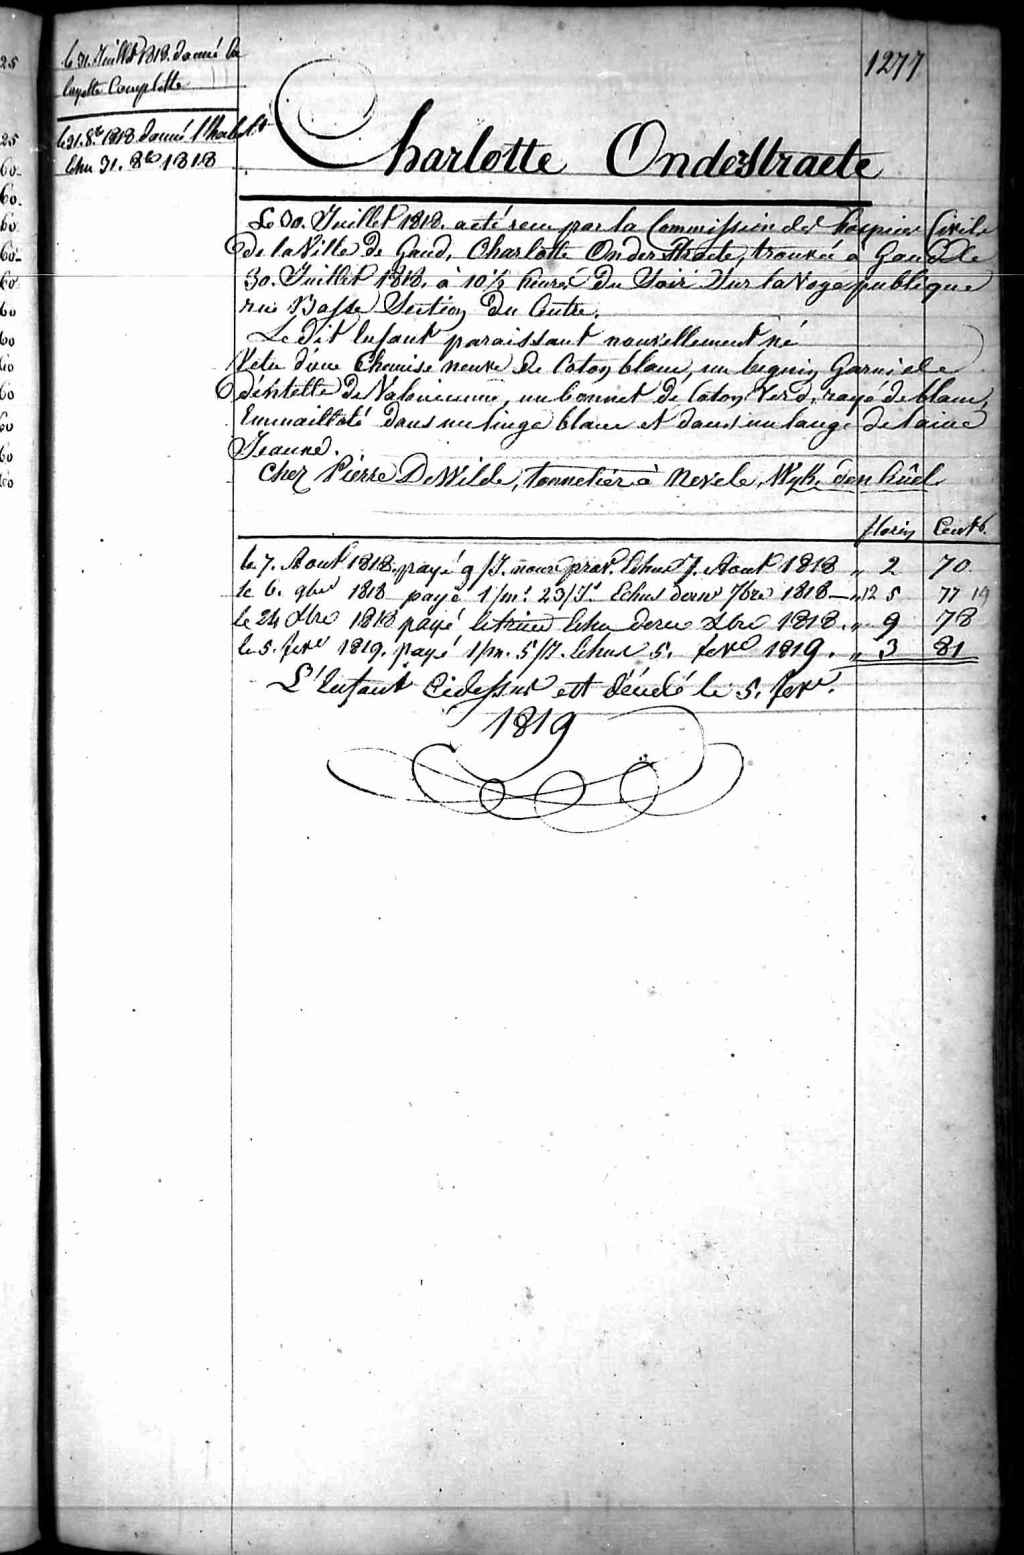 1277
le 31. Juillet 1818. donné la
layette Complette
le 31. 8bre 1818 donné l'habilt
Echu 31. 8bre 1818
Charlotte Onderstraete
Le 30. Juillet 1818. a été recu par la Commission des hospices Civils
de la Ville de Gand, Charlotte Onderstraete, trouvée à Gand le
30. Juillet 1818. à 10½ heures du Soir Sur la Voye publique
rue Basse Section du Centre.
Le dit Enfant paraissant nouvellement né
Vetu d'une Chemise neuve de Coton blanc, un beguin Garni de
déntelle de Valencienne, un bonnet de Coton Verd, rayé de blanc,
Emmailloté dans un linge blanc et dans un lange de laine
Jeaune.
Chez Pierre De Wilde, tonnelier à Nevele, Wyk, den
florin Cents.
le 7. Aout 1818 payé 9/J. Echus 7. Aout 1818 " 2 70
le 6. 9bre 1818 payé 1/m. 23/J. Echus dern 7bre 1818 — " 12 5 77 19
le 24 Xbre 1818 payé le trim Echu dern Xbre 1818. " 9 78
le 5. fevr 1819. payé 1/m. 5/J. Echus 5. fevr 1819. " 3 81
L'Enfant Cidessus est décédé le 5. fevr.
1819
25
25
60
60
60
60
60
60
60
60
60
60
60
60